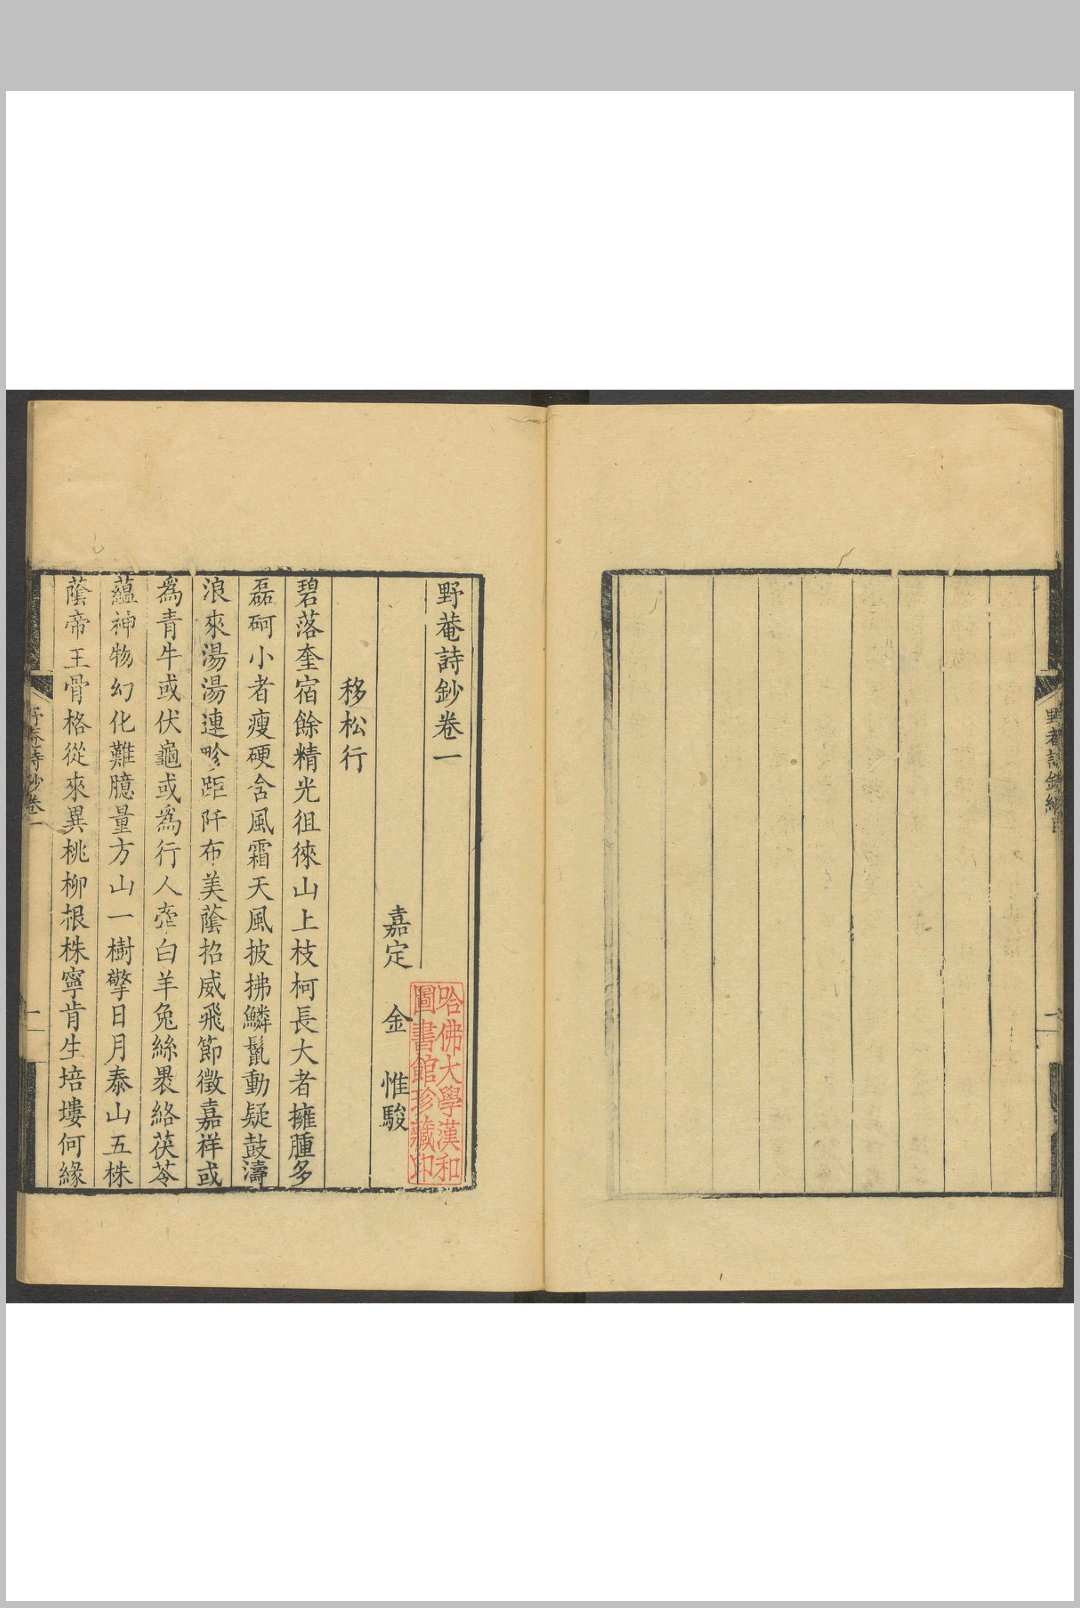 野菴詩鈔卷一
嘉定 金 惟駿
哈佛大學漢和
圖書館珍藏印
移松行
碧落奎宿餘精光徂徠山上枝柯長大者擁腫多
磊砢小者瘦硬含風霜天風披拂鱗鬛動疑鼓濤
浪來湯湯連畛距阡布美蔭招威飛節徵嘉祥或
爲青牛或伏龜或爲行人牽白羊兔絲褁絡茯苓
蘊神物幻化難臆量方山一樹擎日月泰山五株
蔭帝王骨格從來異桃柳根株寧肯生培塿何緣
野菴詩鈔卷一
一